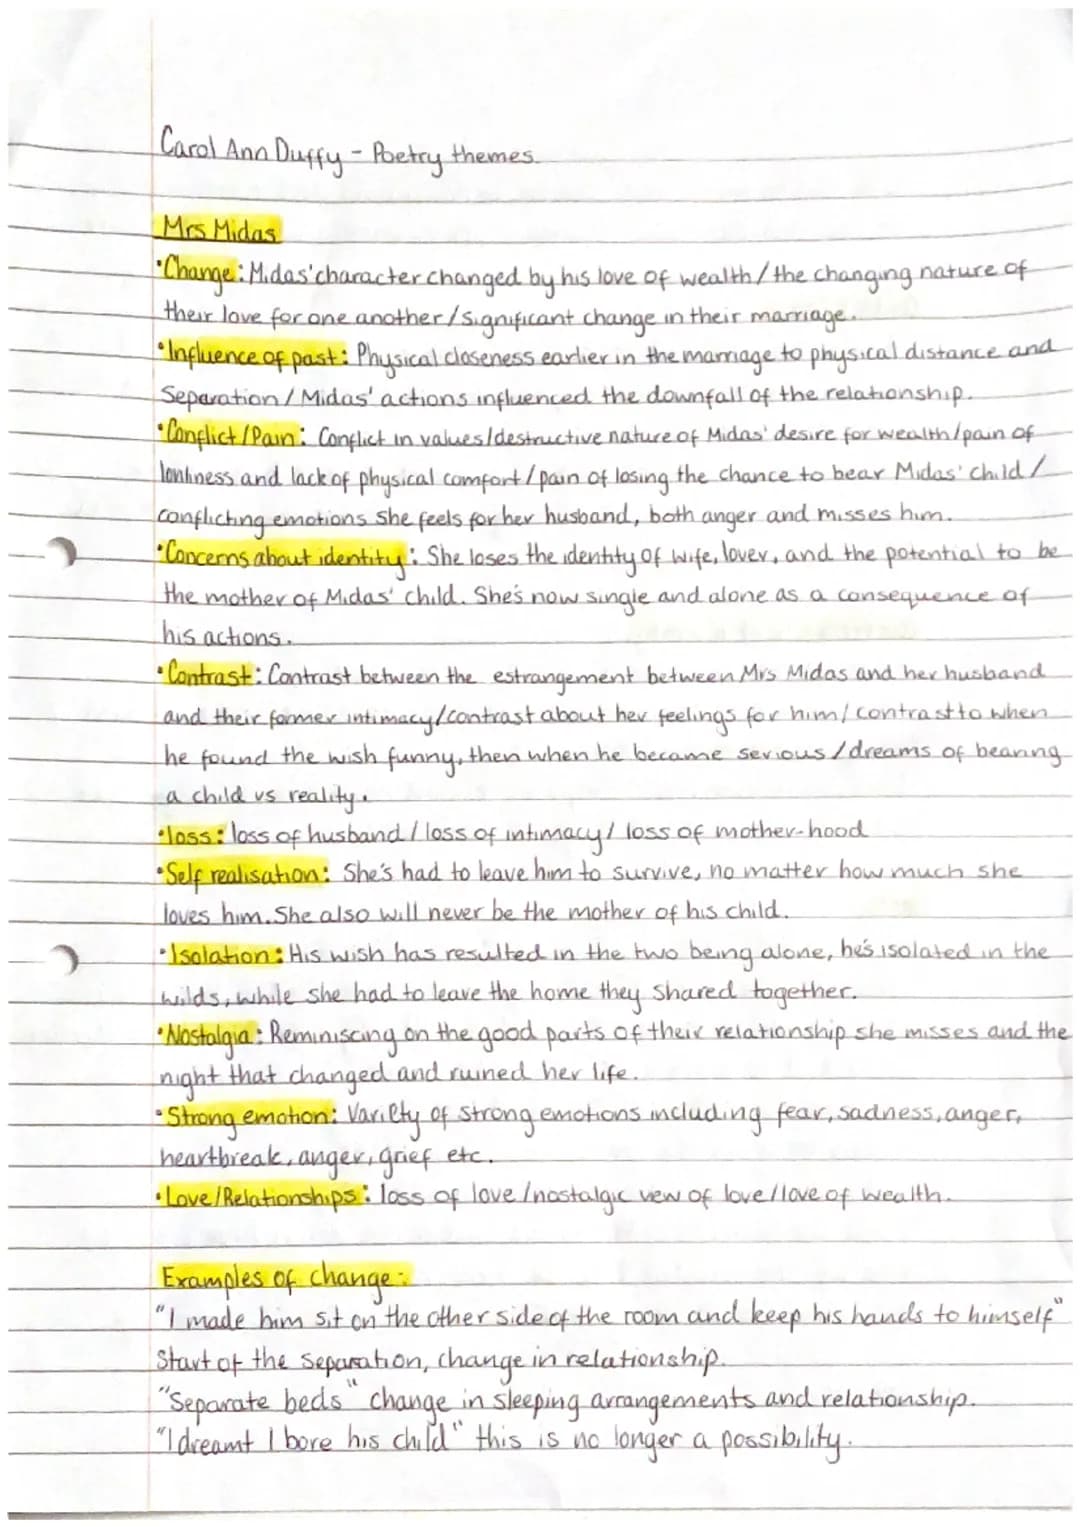 Carol Ann Duffy - Poetry themes.
Mrs Midas
•Change: Midas' character changed by his love of wealth / the changing nature of
their love for one another / Significant change in their marriage.
•Influence of past: Physical closeness earlier in the marriage to physical distance and
Separation / Midas' actions influenced the downfall of the relationship.
•Conflict / Pain: Conflict in values / destructive nature of Midas' desire for wealth / pain of
lonliness and lack of physical comfort / pain of losing the chance to bear Midas' child /
conflicting emotions she feels for her husband, both anger and misses him.
•Concerns about identity: She loses the identity of wife, lover, and the potential to be
the mother of Midas' child. She's now single and alone as a consequence of
his actions.
•Contrast: Contrast between the estrangement between Mrs Midas and her husband
and their former intimacy / contrast about her feelings for him / contrast to when
he found the wish funny, then when he became serious / dreams of bearing
a child vs reality.
•loss: loss of husband / loss of intimacy / loss of mother-hood
•Self realisation: She's had to leave him to survive, no matter how much she
loves him. She also will never be the mother of his child.
•Isolation: His wish has resulted in the two being alone, he's isolated in the
wilds, while she had to leave the home they shared together.
•Nostalgia: Reminiscing on the good parts of their relationship she misses and the
night that changed and ruined her life.
•Strong emotion: Variety of strong emotions including fear, sadness, anger,
heartbreak, anger, grief etc.
•Love/Relationships: loss of love / nostalgic vew of love / love of wealth.
Examples of change:
"I made him sit on the other side of the room and keep his hands to himself"
Start of the separation, change in relationship.
"Separate beds" change in sleeping arrangements and relationship.
"I dreamt I bore his child" this is no longer a possibility.